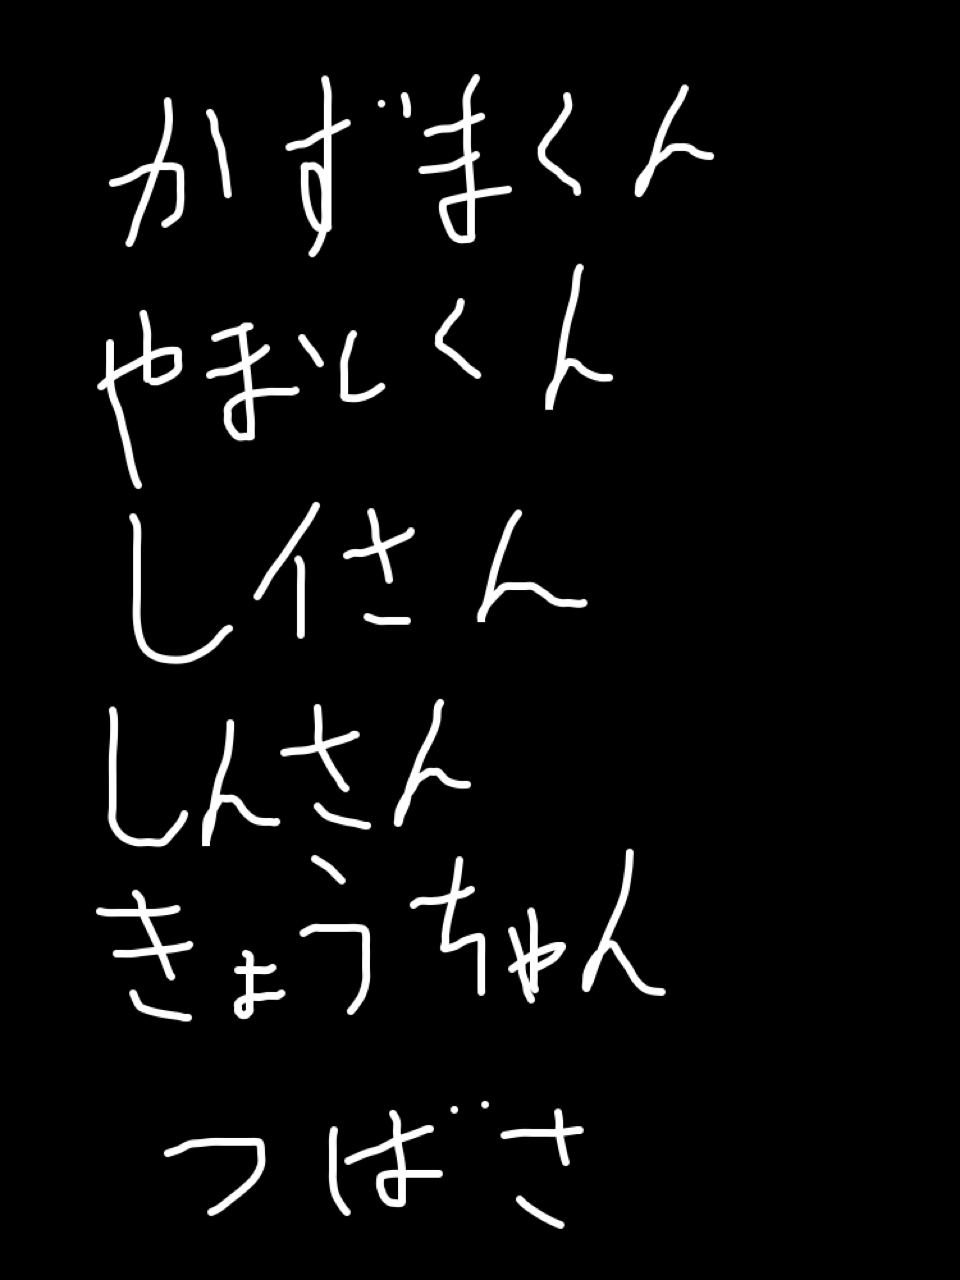 かずまくん
やまとくん
しイさん
しんさん
きょうちゃん
つばさ